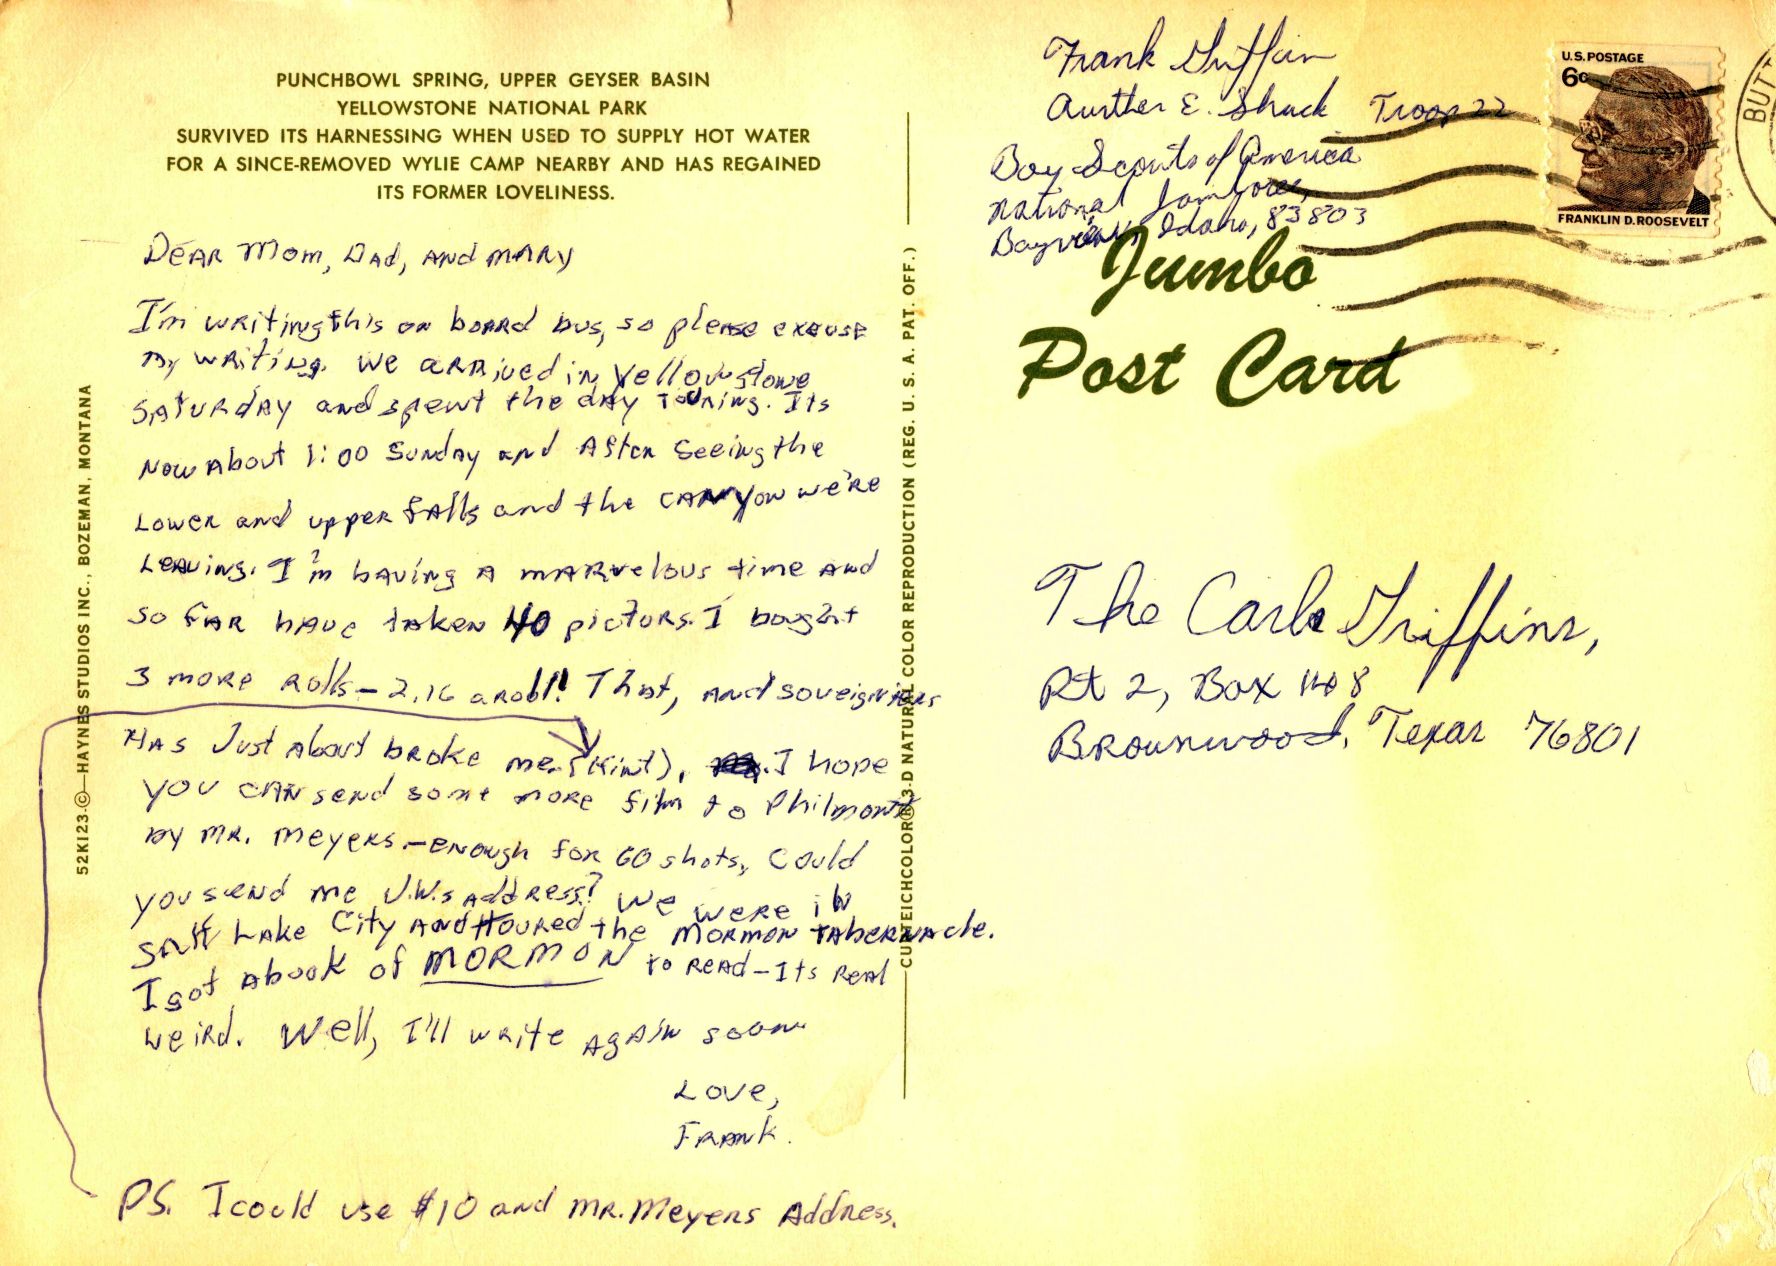 PUNCHBOWL SPRING, UPPER GEYSER BASIN
YELLOWSTONE NATIONAL PARK
SURVIVED ITS HARNESSING WHEN USED TO SUPPLY HOT WATER
FOR A SINCE-REMOVED WYLIE CAMP NEARBY AND HAS REGAINED
ITS FORMER LOVELINESS.
Dear Mom, Dad, and Mary
I'm writing this on board bus, so please excuse
my writing. We arrived in Yellowstone
Saturday and spent the day touring. Its
now about 1:00 Sunday and after seeing the
Lower and upper falls and the canyon we're
leaving. I'm having a marvelous time and
so far have taken 40 picturs. I bought
3 more rolls – 2.16 a roll!! That, and soveigniers
has just about broke me. (Hint), I hope
you can send some more film to Philmont
by Mr. Meyers – enough for 60 shots. Could
you send me J.W.s address? We were in
Salt Lake City and toured the Mormon tabernacle.
I got a book of MORMON to read – Its real
weird. Well, I'll write again soon
Love,
Frank.
PS. I could use $10 and Mr. Meyers Address.
52K123-©—HAYNES STUDIOS INC., BOZEMAN, MONTANA
CURTEICHCOLOR® 3-D NATURAL COLOR REPRODUCTION (REG. U. S. A. PAT. OFF.)
Frank Griffin
Aurther E. Shuck Troop 22
Boy Scouts of America
National Jamboree,
Bayview, Idaho, 83803
Jumbo
Post Card
U.S. POSTAGE
6c
FRANKLIN D. ROOSEVELT
BUTT
The Carl Griffins,
Rt 2, Box 148
Brownwood, Texas 76801